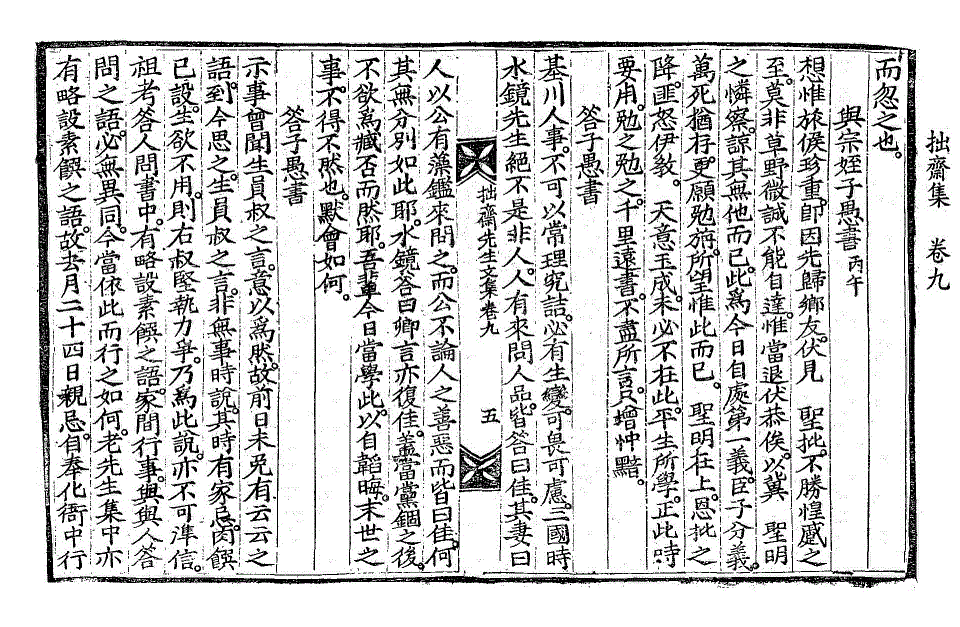 拙齋集　卷九
而忽之也。
與宗姪子愚書 丙午
想惟旅候珍重。卽因先歸鄉友。伏見　聖批。不勝惶感之
至。莫非草野微誠不能自達。惟當退伏恭俟。以冀　聖明
之憐察。諒其無他而已。此爲今日自處第一義。臣子分義。
萬死猶存。更願勉旃。所望惟此而已。　聖明在上。恩批之
降。匪怒伊敎。　天意玉成。未必不在此。平生所學。正此時
要用。勉之勉之。千里遠書。不盡所言。只增忡黯。
答子愚書
基川人事。不可以常理究詰。必有生變。可畏可慮。三國時
水鏡先生絕不是非人。人有來問人品。皆答曰佳。其妻曰
拙齋先生文集卷九　五
人以公有藻鑑來問之。而公不論人之善惡而皆曰佳。何
其無分別如此耶。水鏡答曰卿言亦復佳。蓋當黨錮之後。
不欲爲臧否而然耶。吾輩今日當學此。以自韜晦。末世之
事。不得不然也。默會如何。
答子愚書
示事曾聞生員叔之言。意以爲然。故前日未免有云云之
語。到今思之。生員叔之言。非無事時說。其時有家忌。肉饌
已設。生欲不用。則右叔堅執力爭。乃爲此說。亦不可準信。
祖考答人問書中。有略設素饌之語。家間行事。與與人答
問之語。必無異同。今當依此而行之如何。老先生集中亦
有略設素饌之語。故去月二十四日親忌。自奉化衙中行